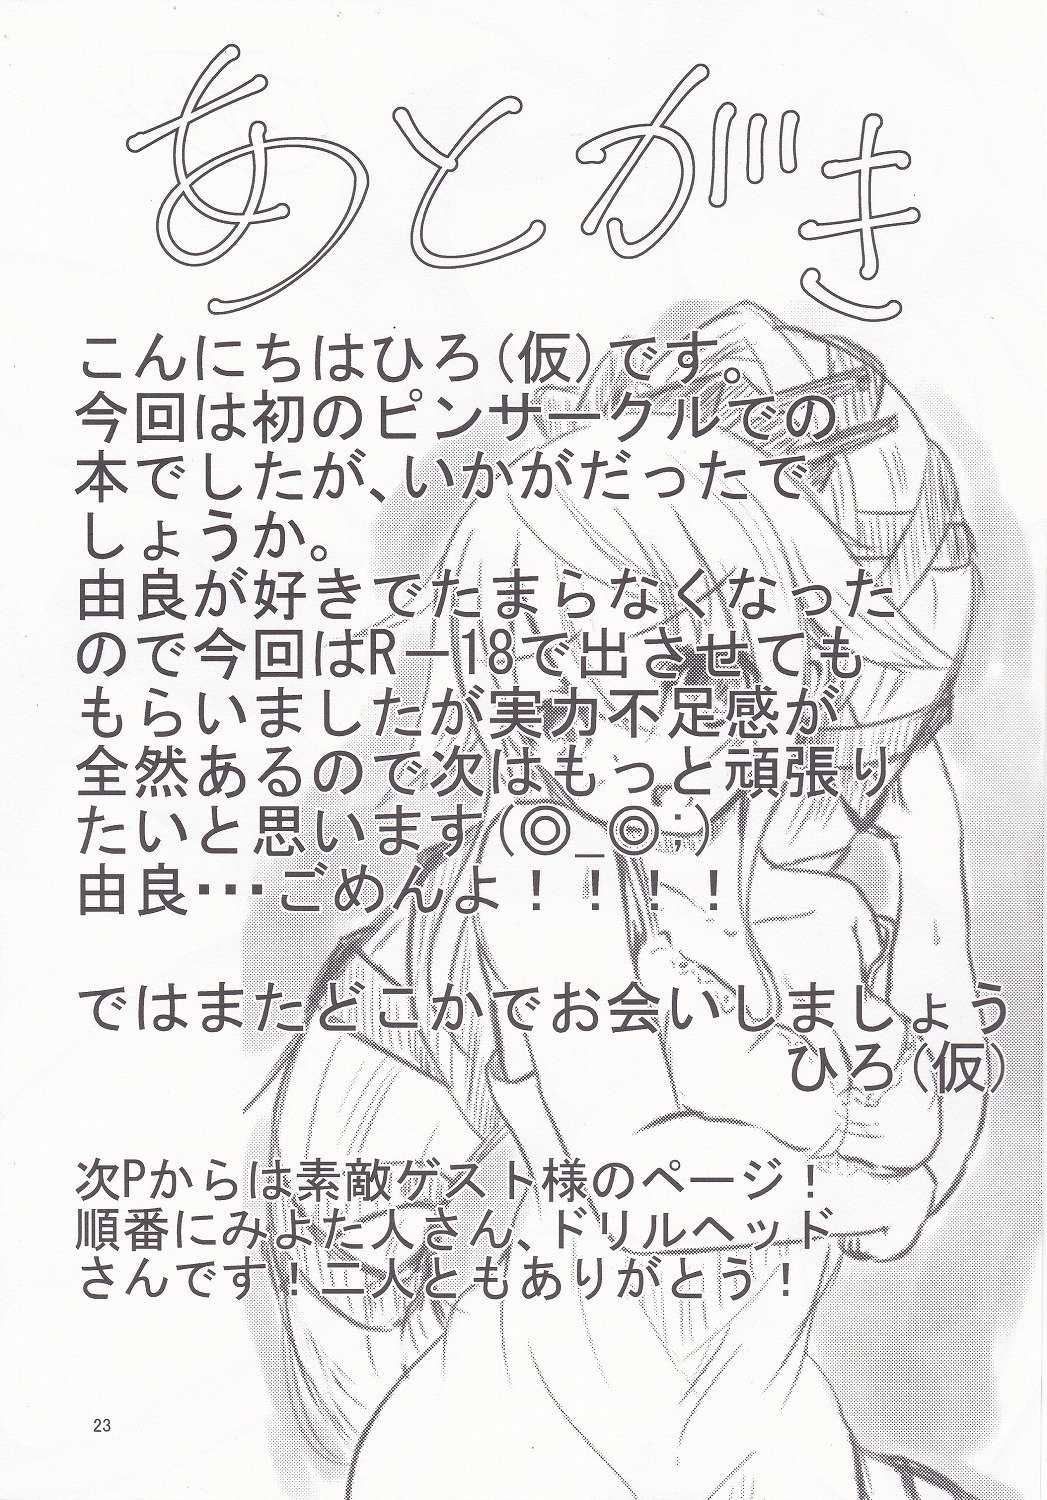 あとがき
こんにちはひろ(仮)です。
今回は初のピンサークルでの
本でしたが、いかがだったで
しょうか。
由良が好きでたまらなくなった
ので今回はR－18で出させても
もらいましたが実力不足感が
全然あるので次はもっと頑張り
たいと思います(◎_◎;)
由良・・・ごめんよ！！！！
ではまたどこかでお会いしましょう
ひろ(仮)
次Pからは素敵ゲスト様のページ！
順番にみよた人さん、ドリルヘッド
さんです！二人ともありがとう！
23